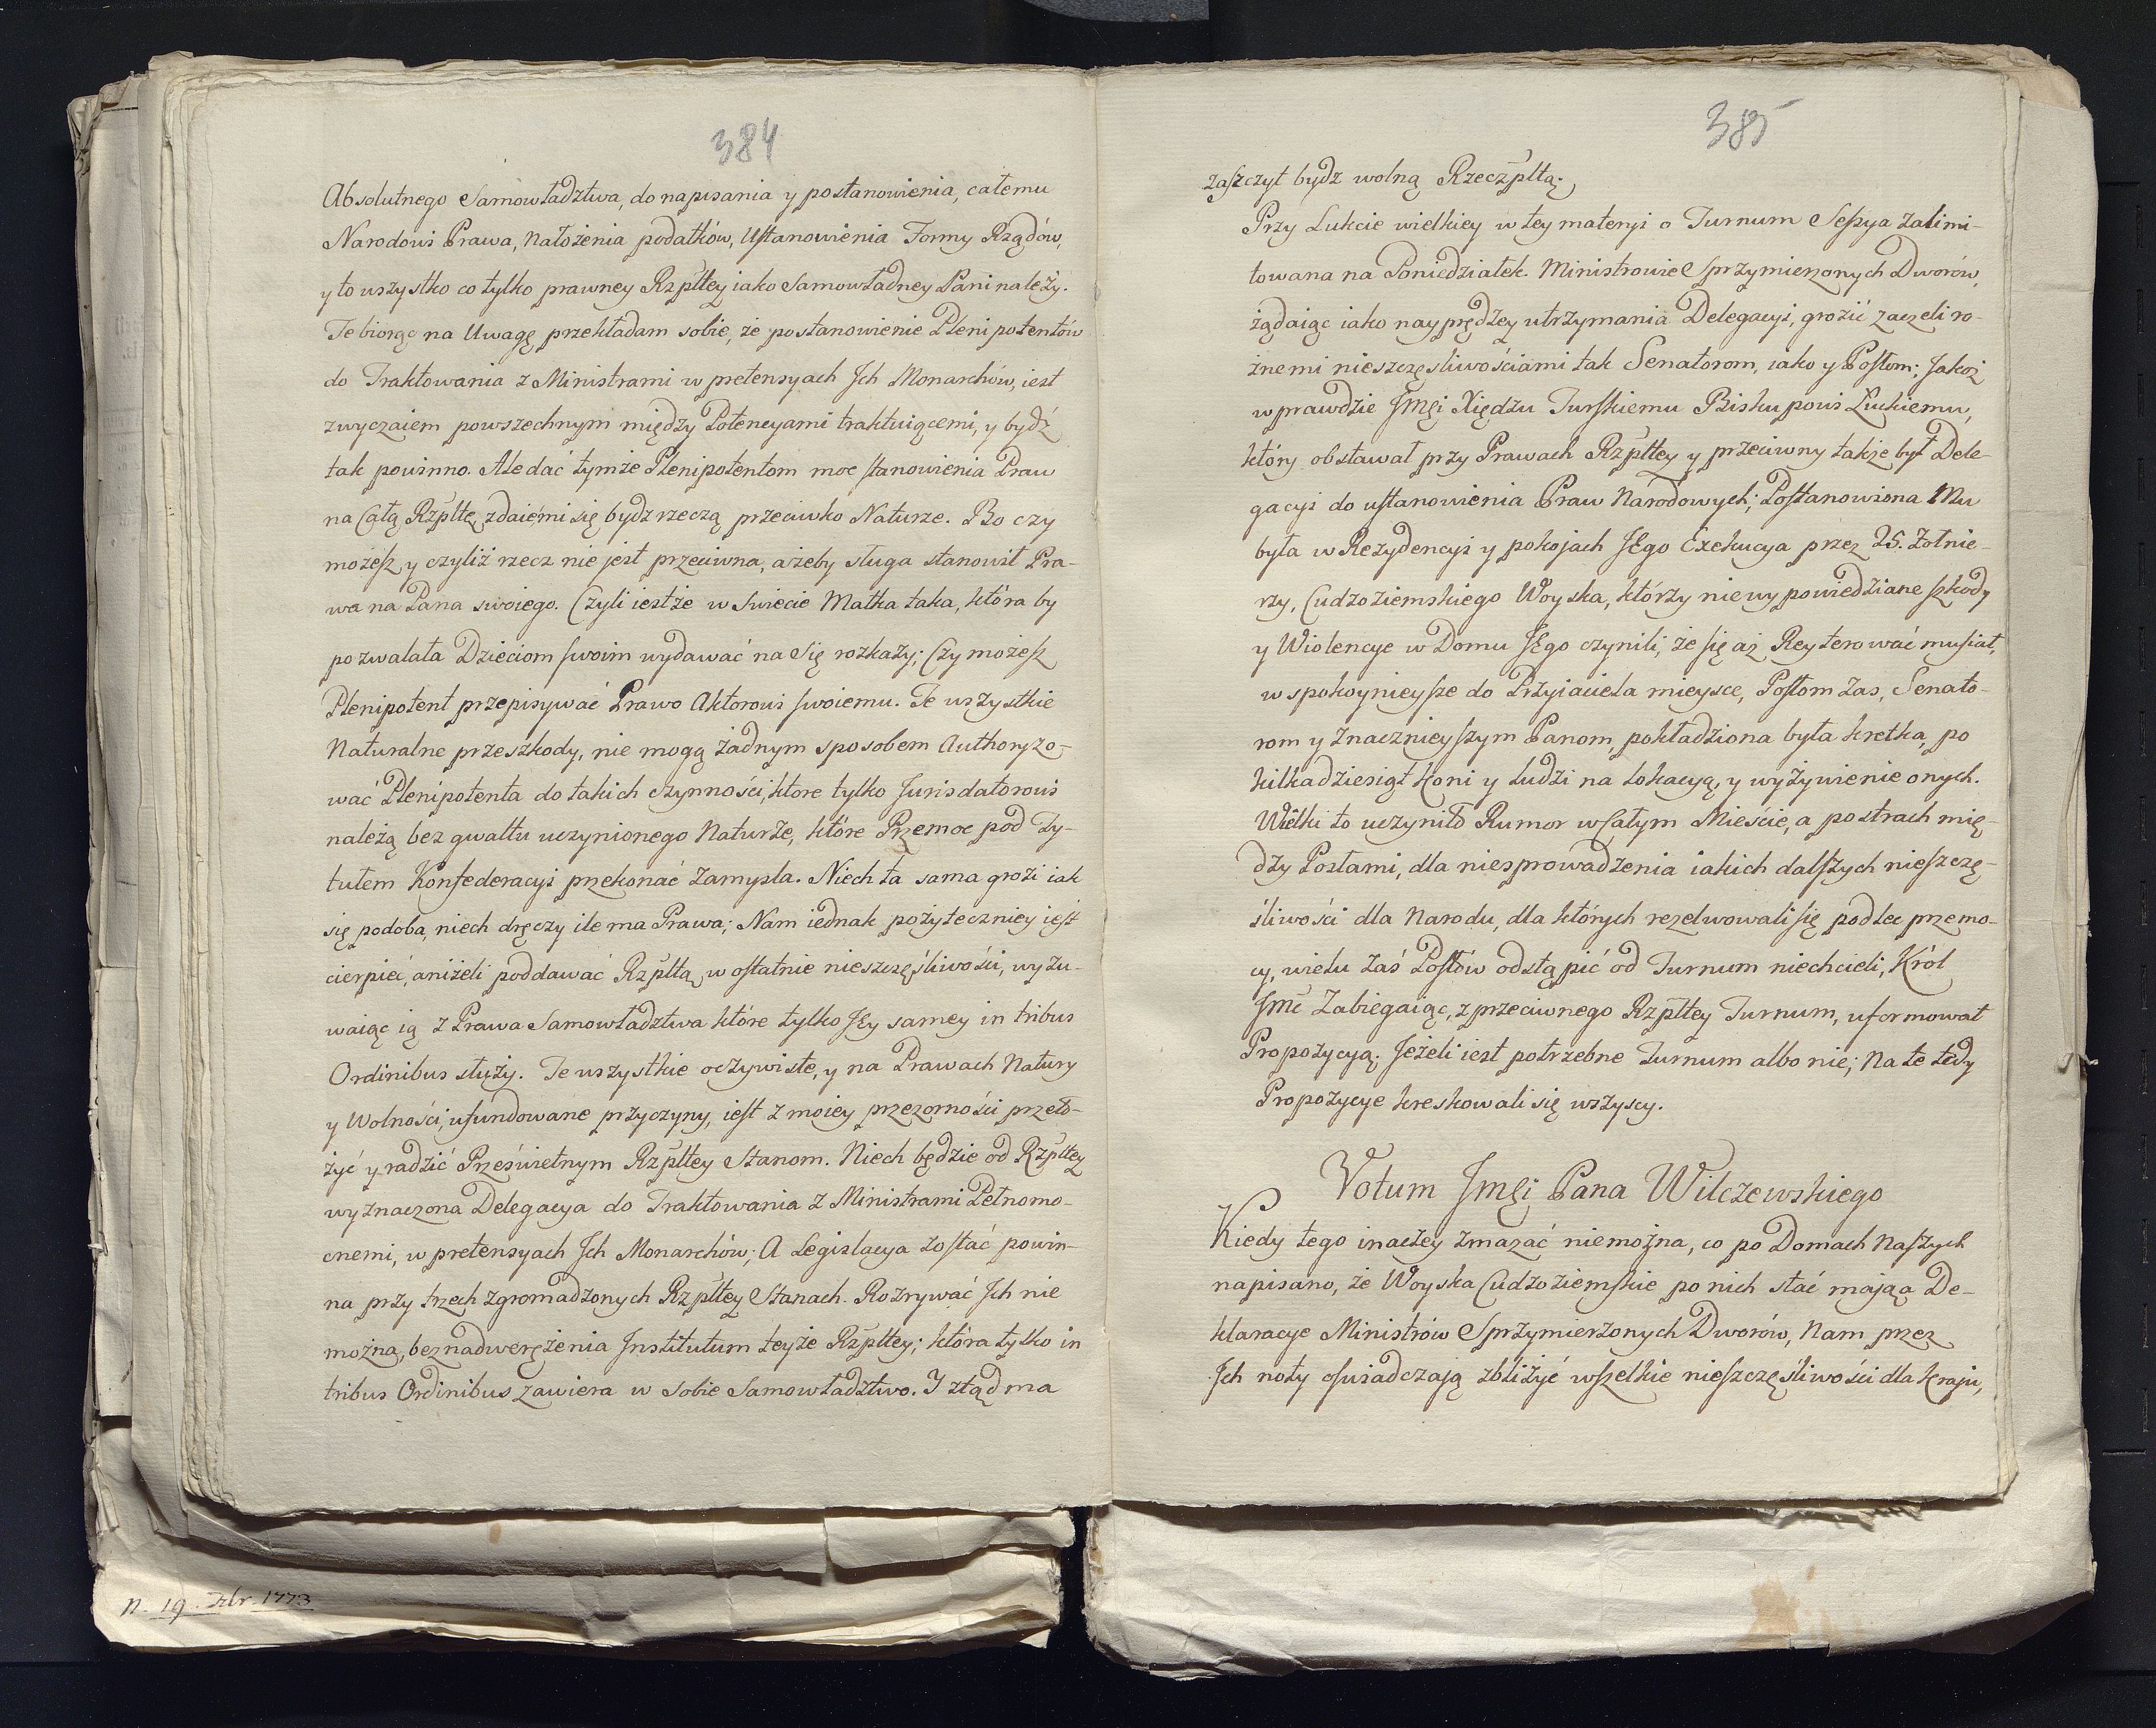 384
Absolutnego Samowładztwa, do napisania y postanowienia, całemu
Narodowi Prawa, Nałożenia podatków, Ustanowienia Formy Rządów,
y to wszystko co tylko prawney Rzpltey iako Samowładney Pani należy.
Te biorąc na Uwagę przekładam sobie, że postanowienie Plenipotentów
do Traktowania z Ministrami w pretensyach Jch Monarchów, iest
zwyczaiem powszechnym między Potencyami traktuiącemi, y bydź
tak powinno. Ale dać tymże Plenipotentom moc stanowienia Praw
na Całą Rzpltę, zdaie mi się bydz rzeczą przeciwko Naturze. Bo czy
możesz y czyliż rzecz nie jest przeciwna, ażeby sługa stanowił Pra-
wa na Pana swoiego. Czyli iestże w Swiecie Matka taka, która by
pozwalała Dzieciom swoim wydawać na Się rozkazy; Czy możesz
Plenipotent przepisywać Prawo Aktorowi swoiemu. Te wszystkie
Naturalne przeszkody, nie mogą żadnym sposobem Authoryzo-
wać Plenipotenta do takich czynności, które tylko Jurisdatorowi
należą bez gwałtu uczynionego Naturze, które Przemoc pod Ty-
tułem Konfederacyi przekonać zamysla. Niech ta sama grozi iak
się podoba, niech dręczy ile ma Prawa; Nam iednak pożyteczniey iest
cierpieć, aniżeli poddawać Rzpltą, w ostatnie nieszczęśliwości, wyzu-
waiąc ią z Prawa Samowładztwa które tylko Jey samey in tribus
Ordinibus służy. Te wszystkie oczywiste, y na Prawach Natury
y Wolności, ufundowane przyczyny, iest z moiey przezorności przeło-
żyć y radzić Prześwietnym Rzpltey Stanom. Niech będzie od Rzpltey
wyznaczona Delegacya do Traktowania z Ministrami Pełnomo-
cnemi, w pretensyach Jch Monarchów; A Legislacya zostać powin-
na przy trzech zgromadzonych Rzpltey Stanach. Rozrywać Jch nie
można, bez nadwerężenia Institutum teyże Rzpltey; która tylko in
tribus Ordinibus zawiera w sobie Samowładztwo. I ztąd ma
n. 19. 1773
385
zaszczyt bydz wolną Rzeczpltą;
Przy Lukcie wielkiey w tey materyi o Turnum Sessya zalimi-
towana na Poniedziałek. Ministrowie Sprzymierzonych Dworów,
żądaiąc iako nayprędzey utrzymania Delegacyi, grozić zaczeli ro-
żnemi nieszczęsliwościami tak Senatorom, iako y Posłom; Jakoż
wprawdzie Jmći Xiędzu Turskiemu Biskupowi Łuckiemu,
który obstawał przy Prawach Rzpltey y przeciwny także był Dele-
gacyi do ustanowienia Praw Narodowych; Postanowiona Mu
była w Rezydencyi y pokojach JEgo Exekucya przez 25. Żołnie-
rzy, Cudzoziemskiego Woyska, którzy niewypowiedziane szkody
y Wiolencye w Domu JEgo czynili, że się aż Reyterować musiał,
w spokoynieysze do Przyiaciela mieysce, Posłom zas, Senato-
rom y Znacznieyszym Panom, pokładziona była kretka, po
kilkadziesiąt Koni y ludzi na lokacyą, y wyżywienie onych.
Wielki to uczyniło Rumor w Całym Mieście, a postrach mię-
dzy Posłami, dla niesprowadzenia iakich dalszych nieszczę-
śliwości dla Narodu, dla których rezelwowali się podlec przemo-
cy, wielu zaś Posłów odstąpić od Turnum niechcieli, Król
Jmć Zabiegaiąc, z przeciwnego Rzpltey Turnum, uformował
Propozycyą; Jeżeli iest potrzebne Turnum albo nie; Na te tedy
Propozycye kreskowali się wszyscy.
Votum Jmći Pana Wilczewskiego
Kiedy tego inaczey zmazać niemożna, co po Domach Naszych
napisano, że Woyska Cudzoziemskie po nich stać mają a De-
klaracye Ministrów Sprzymierzonych Dworów, Nam przez
Jch noty oświadczają zbliżyć wszelkie nieszczęśliwości dla Kraju,